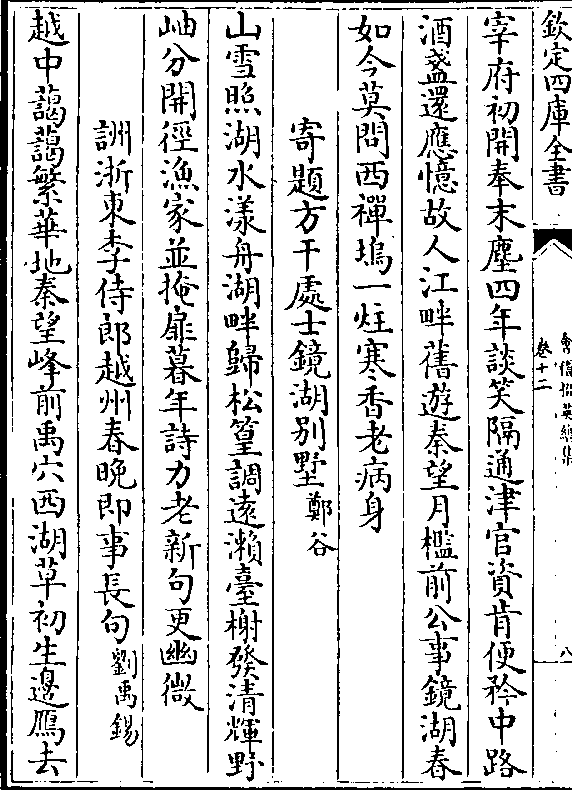 欽定四庫全書
會稽掇英總集
卷十二
八
宰府初開奉末塵四年談笑隔通津官資肯便矜中路
酒盞還應憶故人江畔舊遊秦望月檻前公事鏡湖春
如今莫問西禪塢一炷寒香老病身
寄題方干處士鏡湖別墅 鄭谷
山雪照湖水漾舟湖畔歸松篁調遠瀨臺榭發清輝野
岫分開徑漁家並掩扉暮年詩力老新句更幽微
詶浙東李侍郎越州春晚即事長句 劉禹錫
越中藹藹繁華地秦望峰前禹穴西湖草初生邉鴈去